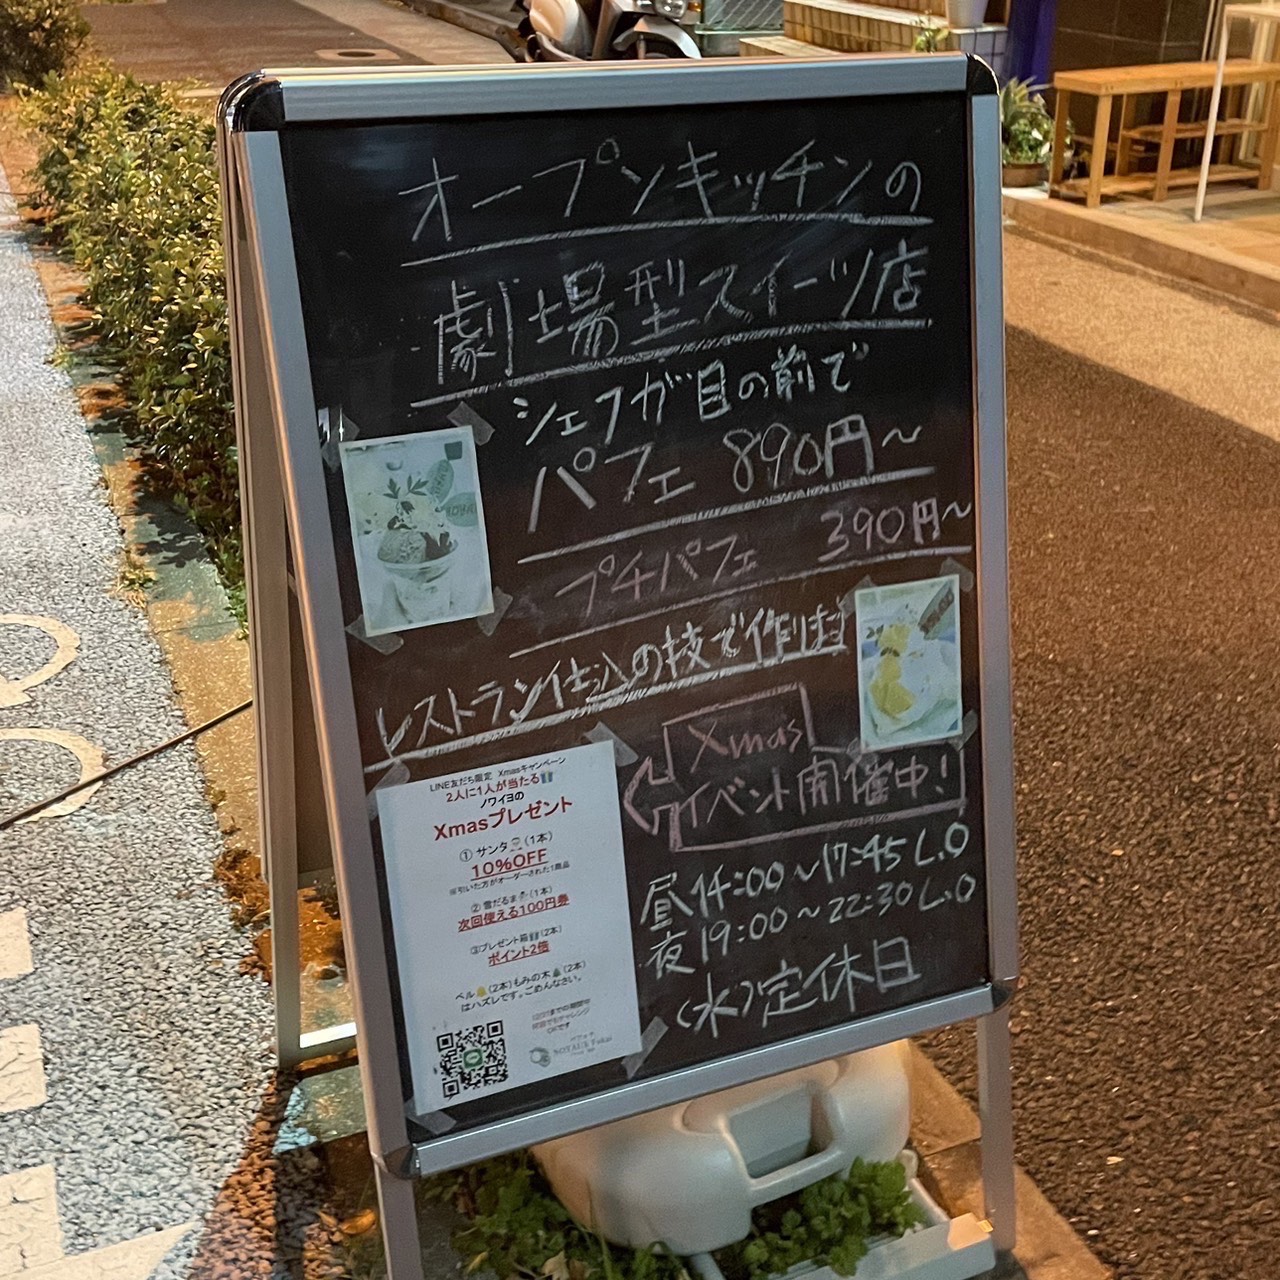 オープンキッチンの
劇場型スイーツ店
シェフが目の前で
パフェ 890円〜
プチパフェ 390円〜
レストラン仕込の技で作ります
Xmas
イベント開催中!
昼 14:00〜17:45 L.O
夜 19:00〜22:30 L.O
(水)定休日
LINE友だち限定 Xmasキャンペーン
2人に1人が当たる
ノワイヨの
Xmasプレゼント
① サンタ(1本)
10%OFF
※引いた方がオーダーされた1商品
② 雪だるま(1本)
次回使える100円券
③プレゼント箱(2本)
ポイント2倍
ベル(2本)もみの木(2本)
はハズレです。ごめんなさい。
12/31までの期間中
何回でもチャレンジ
OKです
NOYAUX